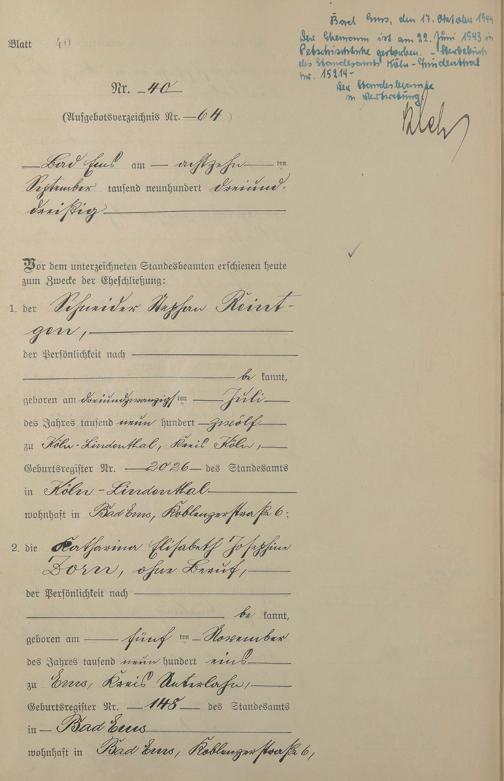 Blatt 40
Bad Ems, den 17. Oktober 1944
Der Ehemann ist am 22. Juni 1943 in
gestorben. - Sterbebuch
des Standesamts Köln-Lindenthal
Nr. 1521 4-
Der Standesbeamte
in Vertretung
Nr. 40
(Aufgebotsverzeichnis Nr. 64)
Bad Ems am achtzehnten
September tausend neunhundert dreiund-
dreißig
Vor dem unterzeichneten Standesbeamten erschienen heute
zum Zwecke der Eheschließung:
1. der Schneider Stephan Reint-
gen,
der Persönlichkeit nach
be kannt,
geboren am dreiundzwanzigsten Juli
des Jahres tausend neun hundert zwölf
zu Köln-Lindenthal, Kreis Köln,
Geburtsregister Nr. 2026 des Standesamts
in Köln-Lindenthal
wohnhaft in Bad Ems, Koblenzerstraße 6.
2. die Katharina Elisabeth Josephine
Dorn, ohne Beruf,
der Persönlichkeit nach
be kannt,
geboren am fünften November
des Jahres tausend neun hundert eins
zu Ems, Kreis Unterlahn,
Geburtsregister Nr. 145 des Standesamts
in Bad Ems
wohnhaft in Bad Ems, Koblenzerstraße 6,